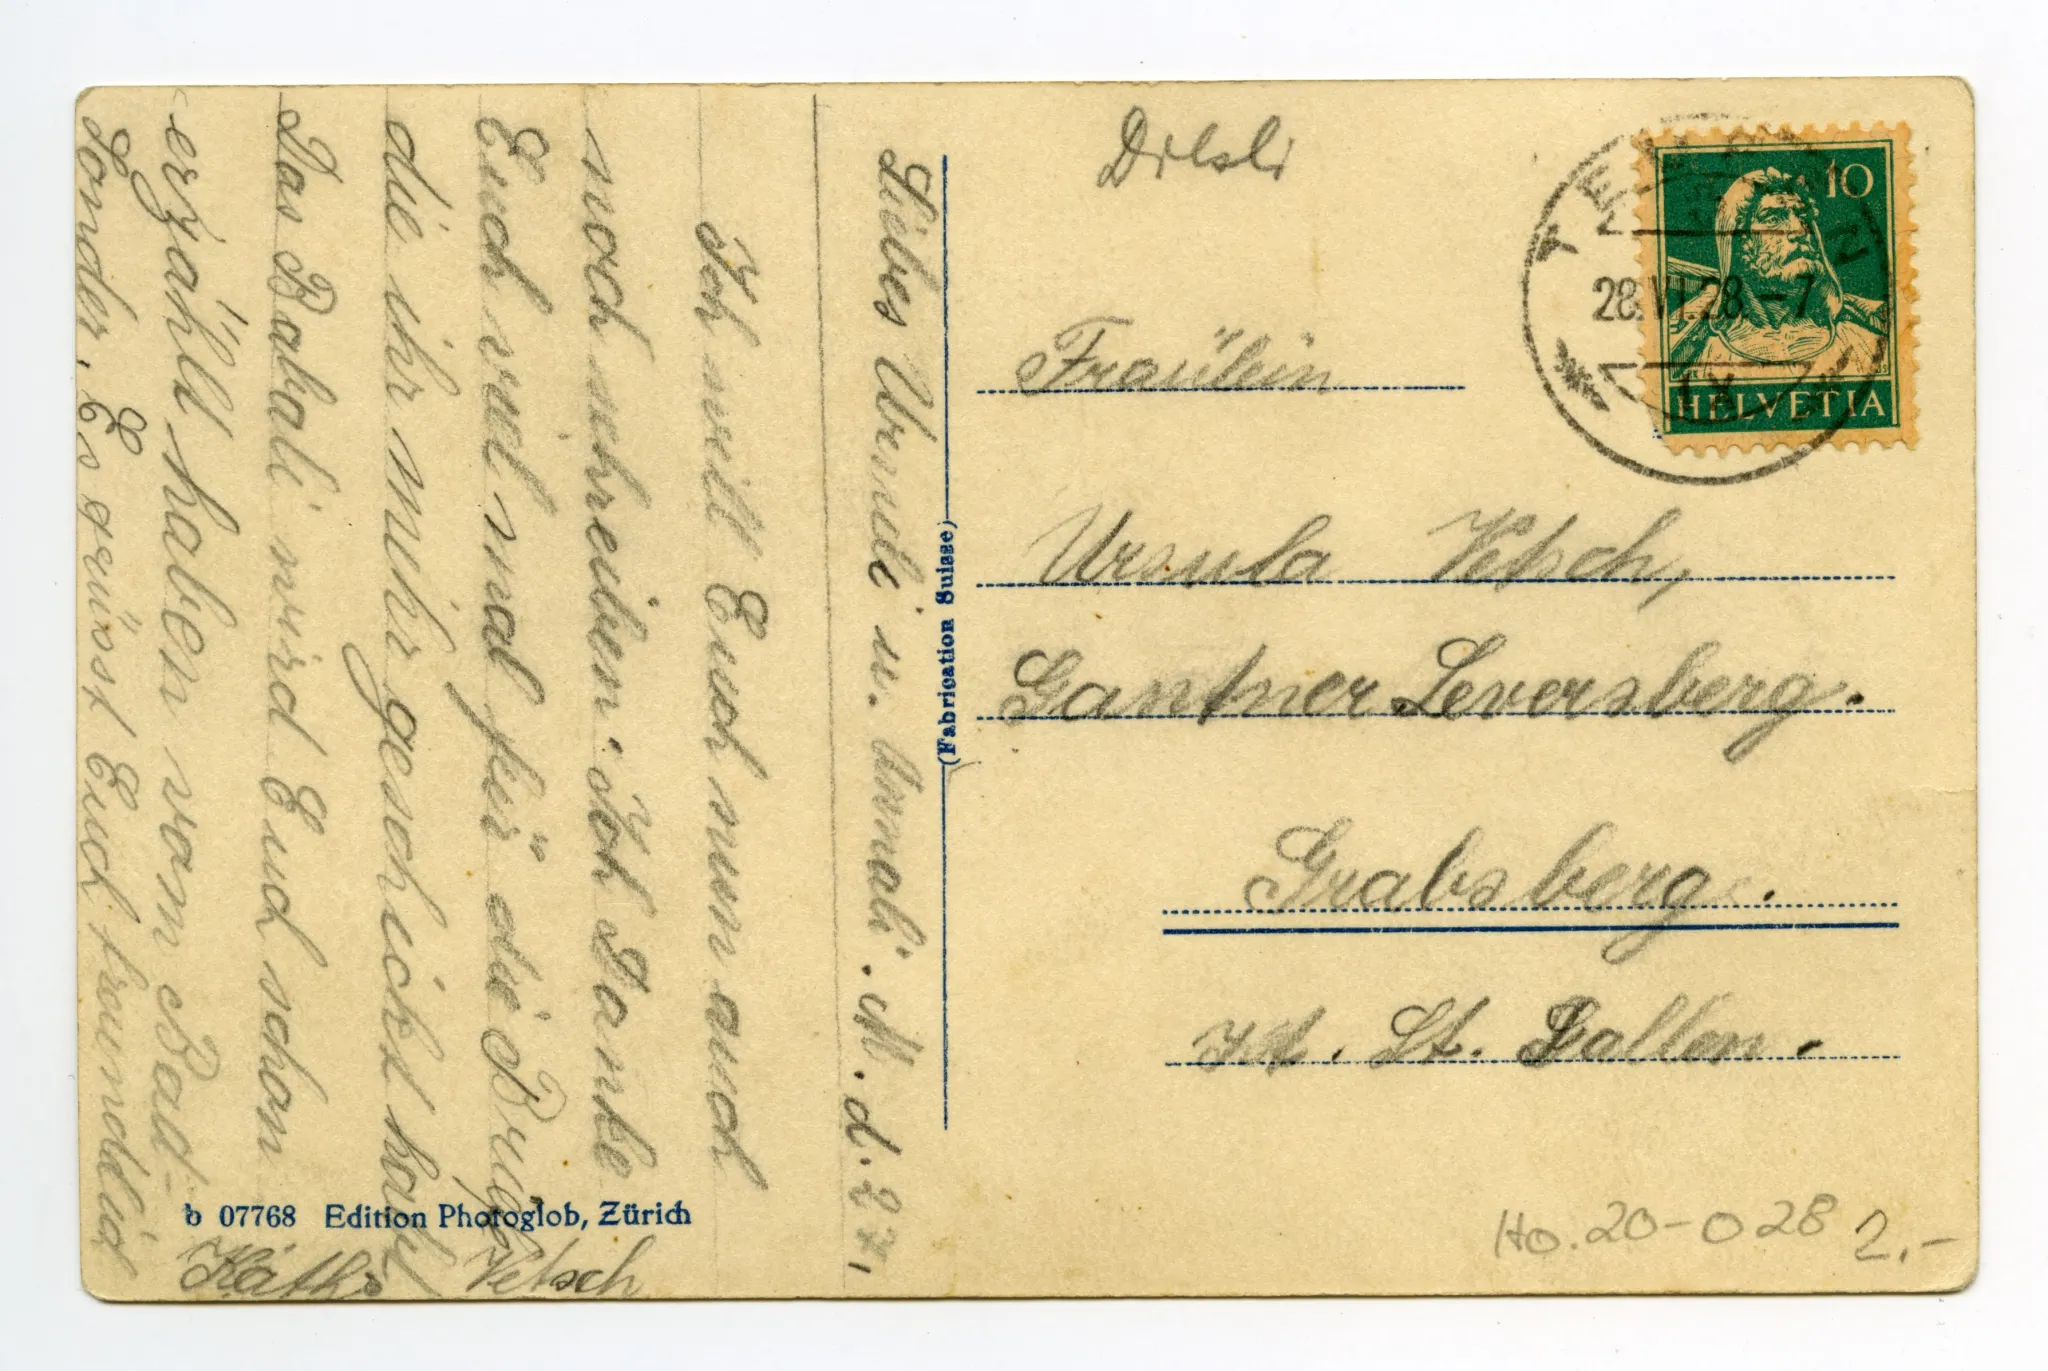 Liebes Urseli u. Annali. M. d. 27.
Ich will Euch nun auch
noch schreiben. Ich Danke
Euch viel mal für die
die ihr mihr geschickt habt
Das Babali wird Euch schon
erzählt haben vom Bad-
Es grüsst Euch freundlich
Käthi Vetsch
b 07768 Edition Photoglob, Zürich
(Fabrication Suisse)
10
HELVETIA
28.VI.28.-7
IX
Fräulein
Ursula Vetsch,
Gantner Leversberg.
Grabsberg.
Kt. St. Gallen.
Ho. 20-028
2.-